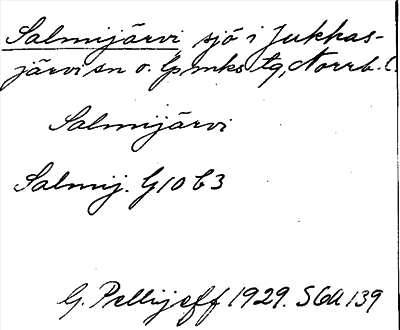 Salmijärvi, sjö i Jukkas-
järvi sn o. lpmks tg, Norrb. l.
Salmijärvi
Salmij. G10 b3
G. Pellijeff 1929. SGU 139